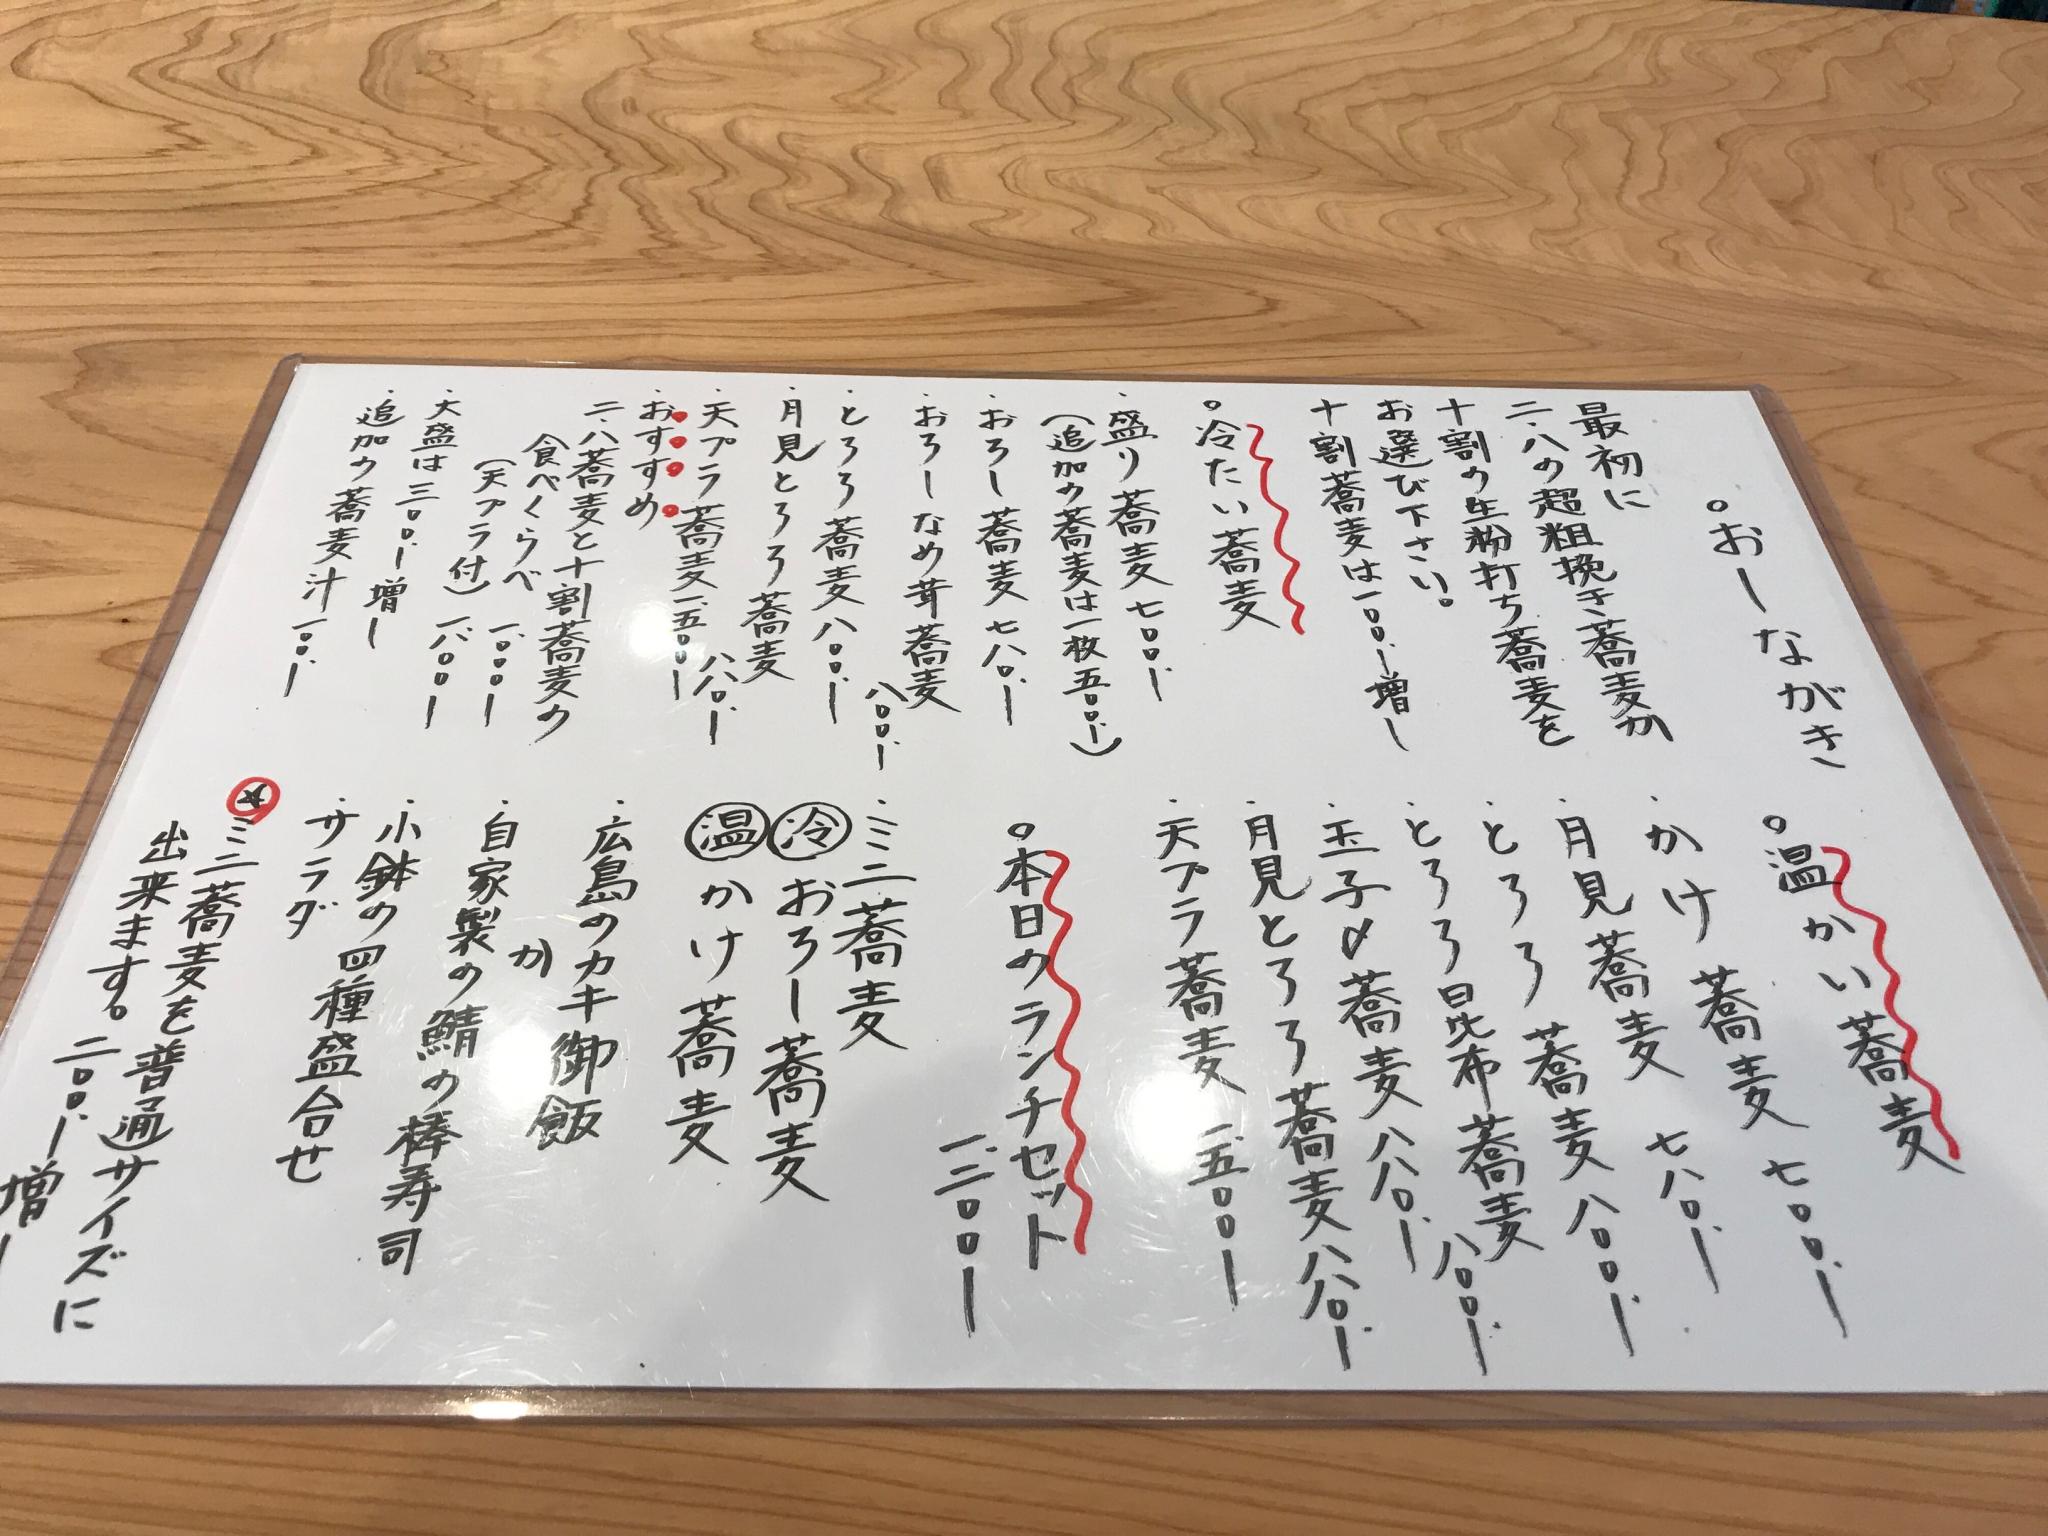 。おしながき
最初に
二・八の超粗挽き蕎麦か
十割の生粉打ち蕎麦を
お選び下さい。
十割蕎麦は一〇〇.ー増し
。冷たい蕎麦
・盛り蕎麦 七〇〇.ー
(追加の蕎麦は一枚五〇〇.ー)
・おろし蕎麦 七八〇.ー
・おろしなめ茸蕎麦
八〇〇.ー
・とろろ蕎麦 八〇〇.ー
・月見とろろ蕎麦
八八〇.ー
・天プラ蕎麦 一.五〇〇ー
おすすめ
二・八蕎麦と十割蕎麦の
食べくらべ 一.〇〇〇ー
(天プラ付) 一.八〇〇ー
・大盛は三〇〇.ー増し
・追加の蕎麦汁 一〇〇.ー
。温かい蕎麦
・かけ蕎麦 七〇〇.ー
・月見蕎麦 七八〇.ー
・とろろ蕎麦 八〇〇.ー
・とろろ昆布蕎麦 八〇〇.ー
・玉子〆蕎麦 八八〇.ー
・月見とろろ蕎麦 八八〇.ー
・天プラ蕎麦 一.五〇〇ー
。本日のランチセット
一.二〇〇ー
・ミニ蕎麦
冷 おろし蕎麦
温 かけ蕎麦
・広島のカキ御飯
か
・自家製の鯖の棒寿司
・小鉢の四種盛合せ
・サラダ
☆ミニ蕎麦を普通サイズに
出来ます。二〇〇.ー増し